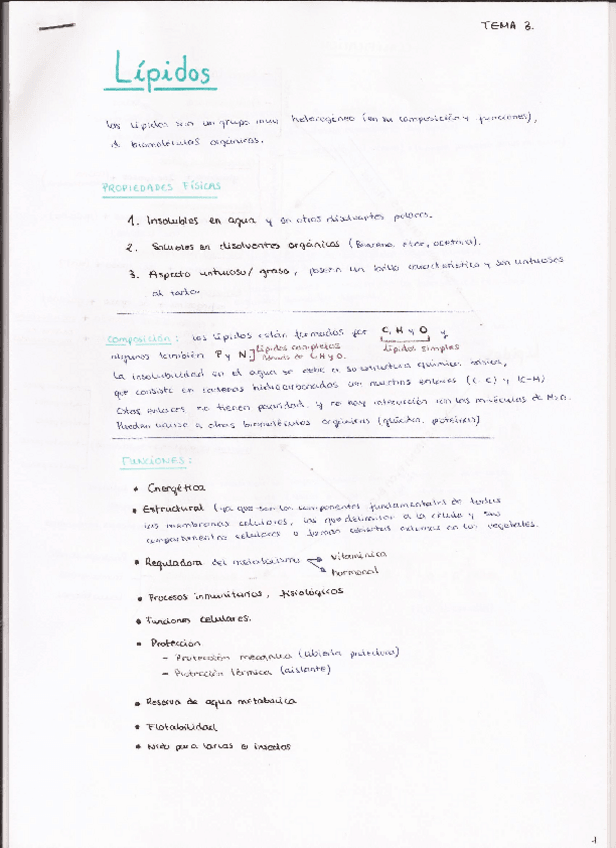 TEMA 3.
Lípidos
Los lípidos son un grupo muy heterogéneo (en su composición y funciones),
d biomoléculas orgánicas.
PROPIEDADES FÍSICAS
1. Insolubles en agua y en otros disolventes polares.
2. Solubles en disolventes orgánicos (Benceno, éter, acetona).
3. Aspecto untuoso/graso, poseen un brillo característico y son untuosos
al tacto.
Composición: Los lípidos están formados por C, H y O y
algunos también P y N] Lípidos complejos además de C H y O. Lípidos simples
La insolubilidad en el agua se debe a su estructura química básica,
que consiste en cadenas hidrocarbonadas con muchos enlaces (C-C) y (C-H)
Estos enlaces no tienen polaridad y no hay interacción con las moléculas de H2O.
Pueden unirse a otras biomoléculas orgánicas (glúcidos, proteínas)
FUNCIONES:
• Energética
• Estructural (ya que son los componentes fundamentales de todas
las membranas celulares, las que delimitan a la célula y sus
compartimentos celulares o forman cubiertas externas en los vegetales.
• Reguladora del metabolismo → vitamínica
→ hormonal
• Procesos inmunitarios, fisiológicos
• Funciones celulares.
• Protección
- Protección mecánica (cubierta protectora)
- Protección térmica (aislante)
• Reserva de agua metabólica
• Flotabilidad
• Nido para larvas o insectos
1